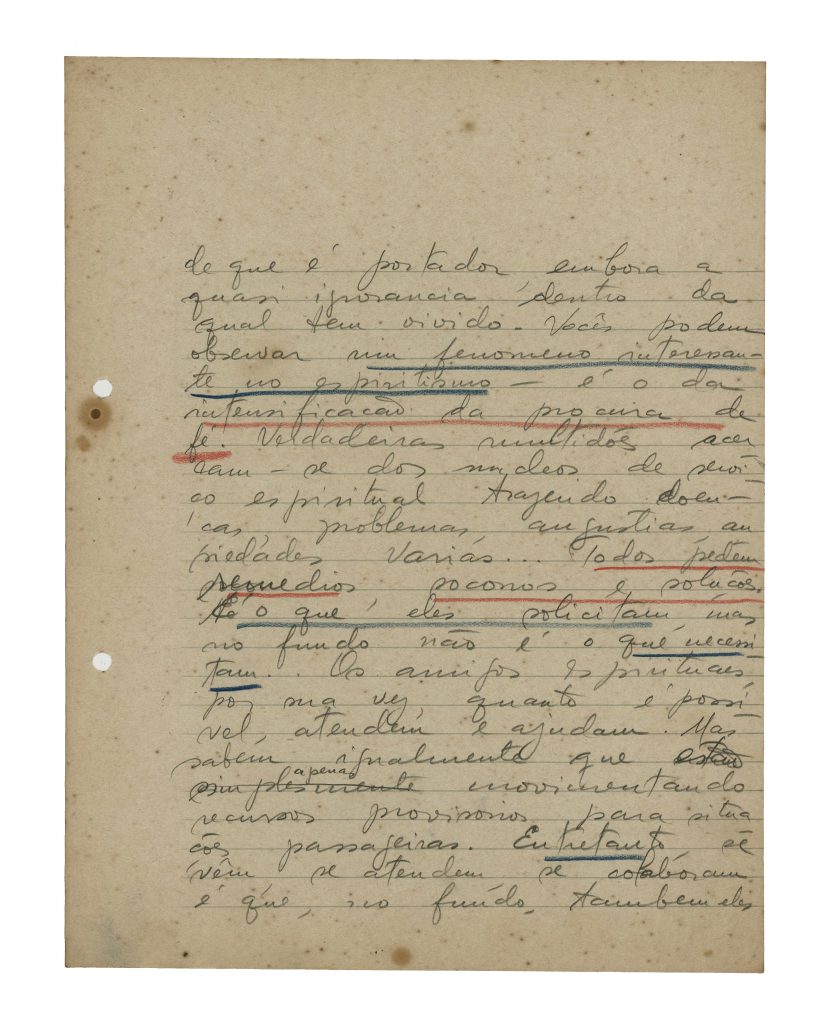 de que é portador embora a
quasi ignorancia dentro da
qual tem vivido. Vocês podem
observar um fenomeno interessan-
te no espiritismo - é o da
intensificação da procura de
fé. Verdadeiras multidões acer
cam-se dos nucleos de servi
ço espiritual trazendo doen-
ças, problemas angustias an
siedades varias... Todos pedem
remedios socorros e soluções.
é o que eles solicitam, mas
no fundo não é o que necessi
tam. Os amigos espirituaes
por sua vez, quanto é possi
vel, atendem e ajudam. Mas
sabem igualmente que estão
apenas
simplesmente movimentando
recursos provisorios para situa
ções passageiras. Entretanto, se
vêm se atendem se colaboram
é que, no fundo, tambem eles